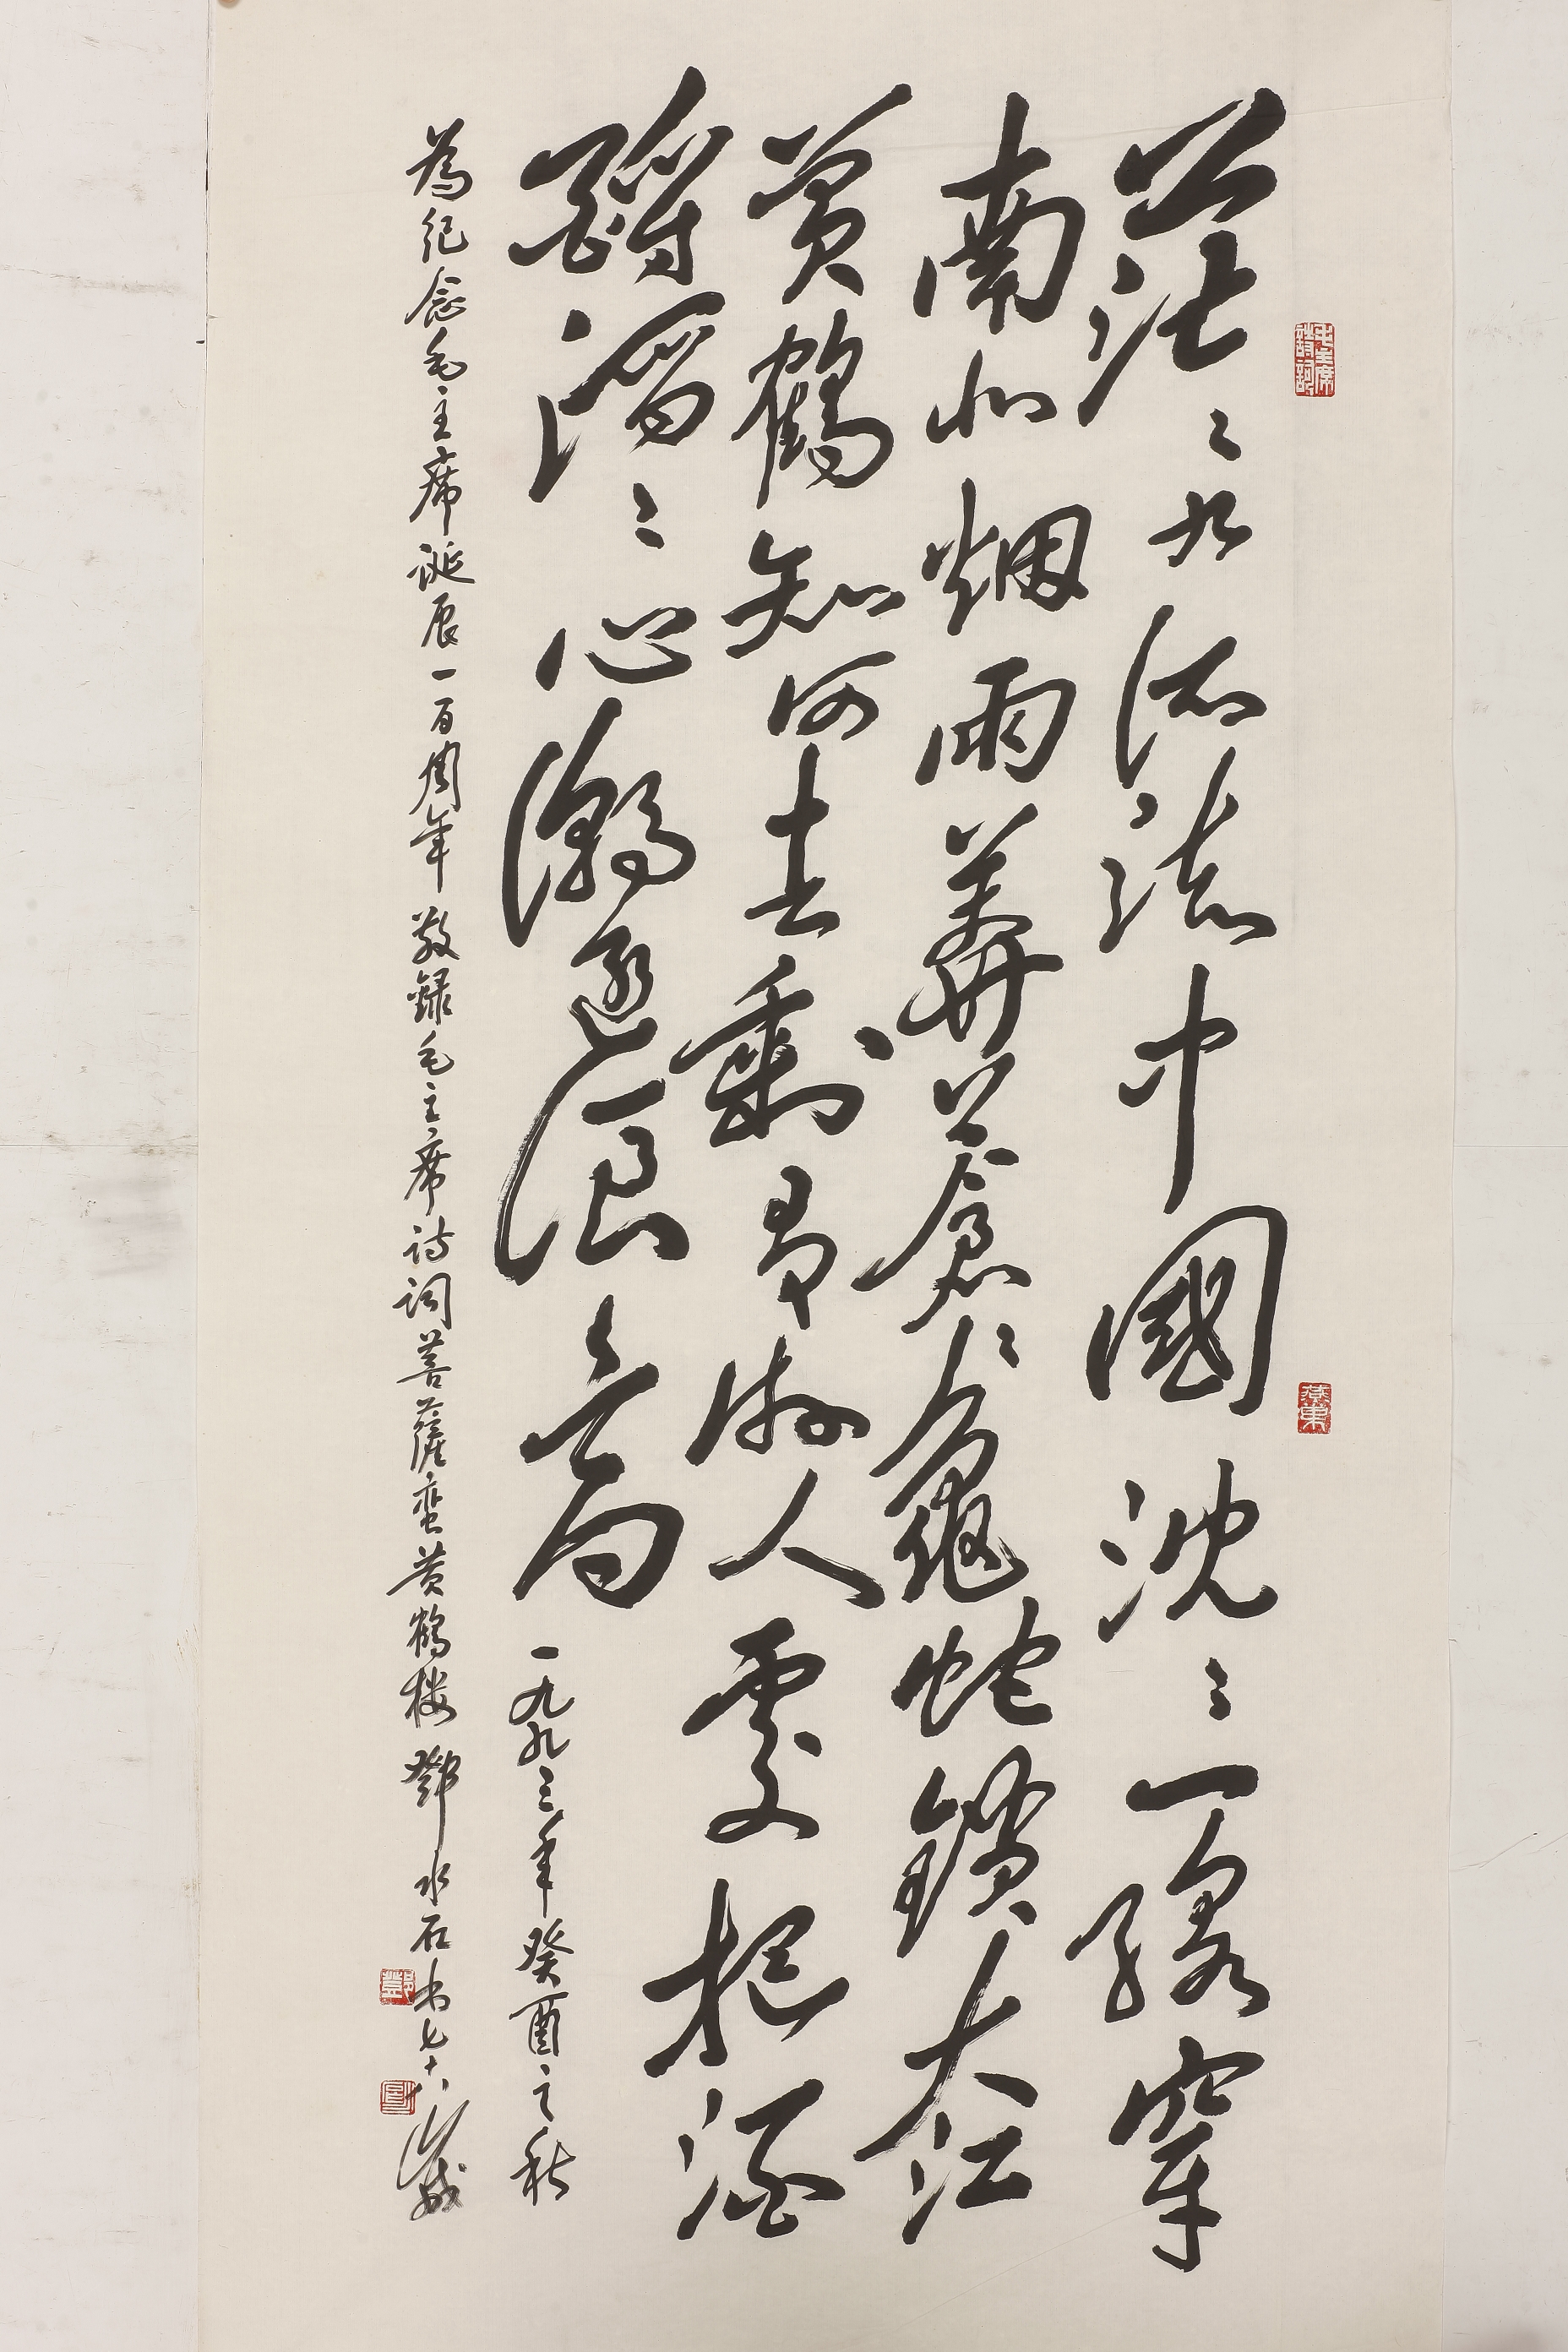 茫茫九派流中國沈沈一線穿
南北烟雨莽蒼蒼龜蛇鎖大江
黄鶴知何去剩有游人處把酒
酹滔滔心潮逐浪高
一九九三年癸酉之秋
為紀念毛主席誕辰一百周年敬録毛主席诗词菩薩蛮黄鶴楼鄧水石书七十八歲
毛主席詩詞